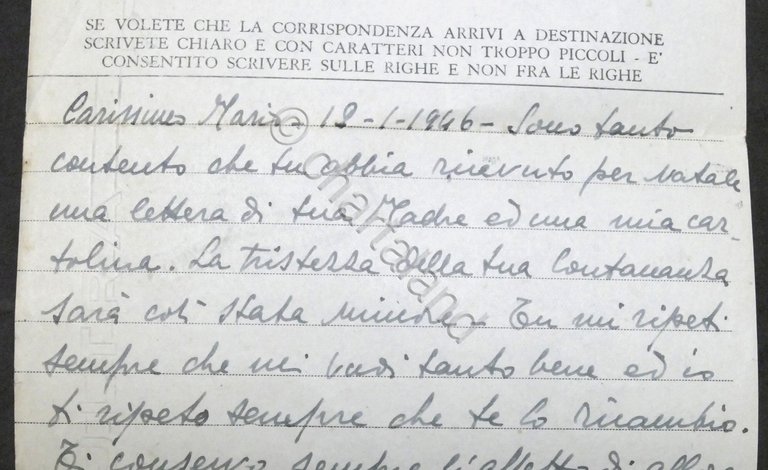 SE VOLETE CHE LA CORRISPONDENZA ARRIVI A DESTINAZIONE
SCRIVETE CHIARO E CON CARATTERI NON TROPPO PICCOLI - E'
CONSENTITO SCRIVERE SULLE RIGHE E NON FRA LE RIGHE
Carissimo Mario - 12-1-1946 - Sono tanto
contento che tu abbia ricevuto per Natale
una lettera di tua Madre ed una mia car-
tolina. La tristezza della tua lontananza
sarà così stata minore. Tu mi ripeti
sempre che mi vuoi tanto bene ed io
ti ripeto sempre che te lo ricambio.
Ti conservo sempre l'affetto di
© Chartaland